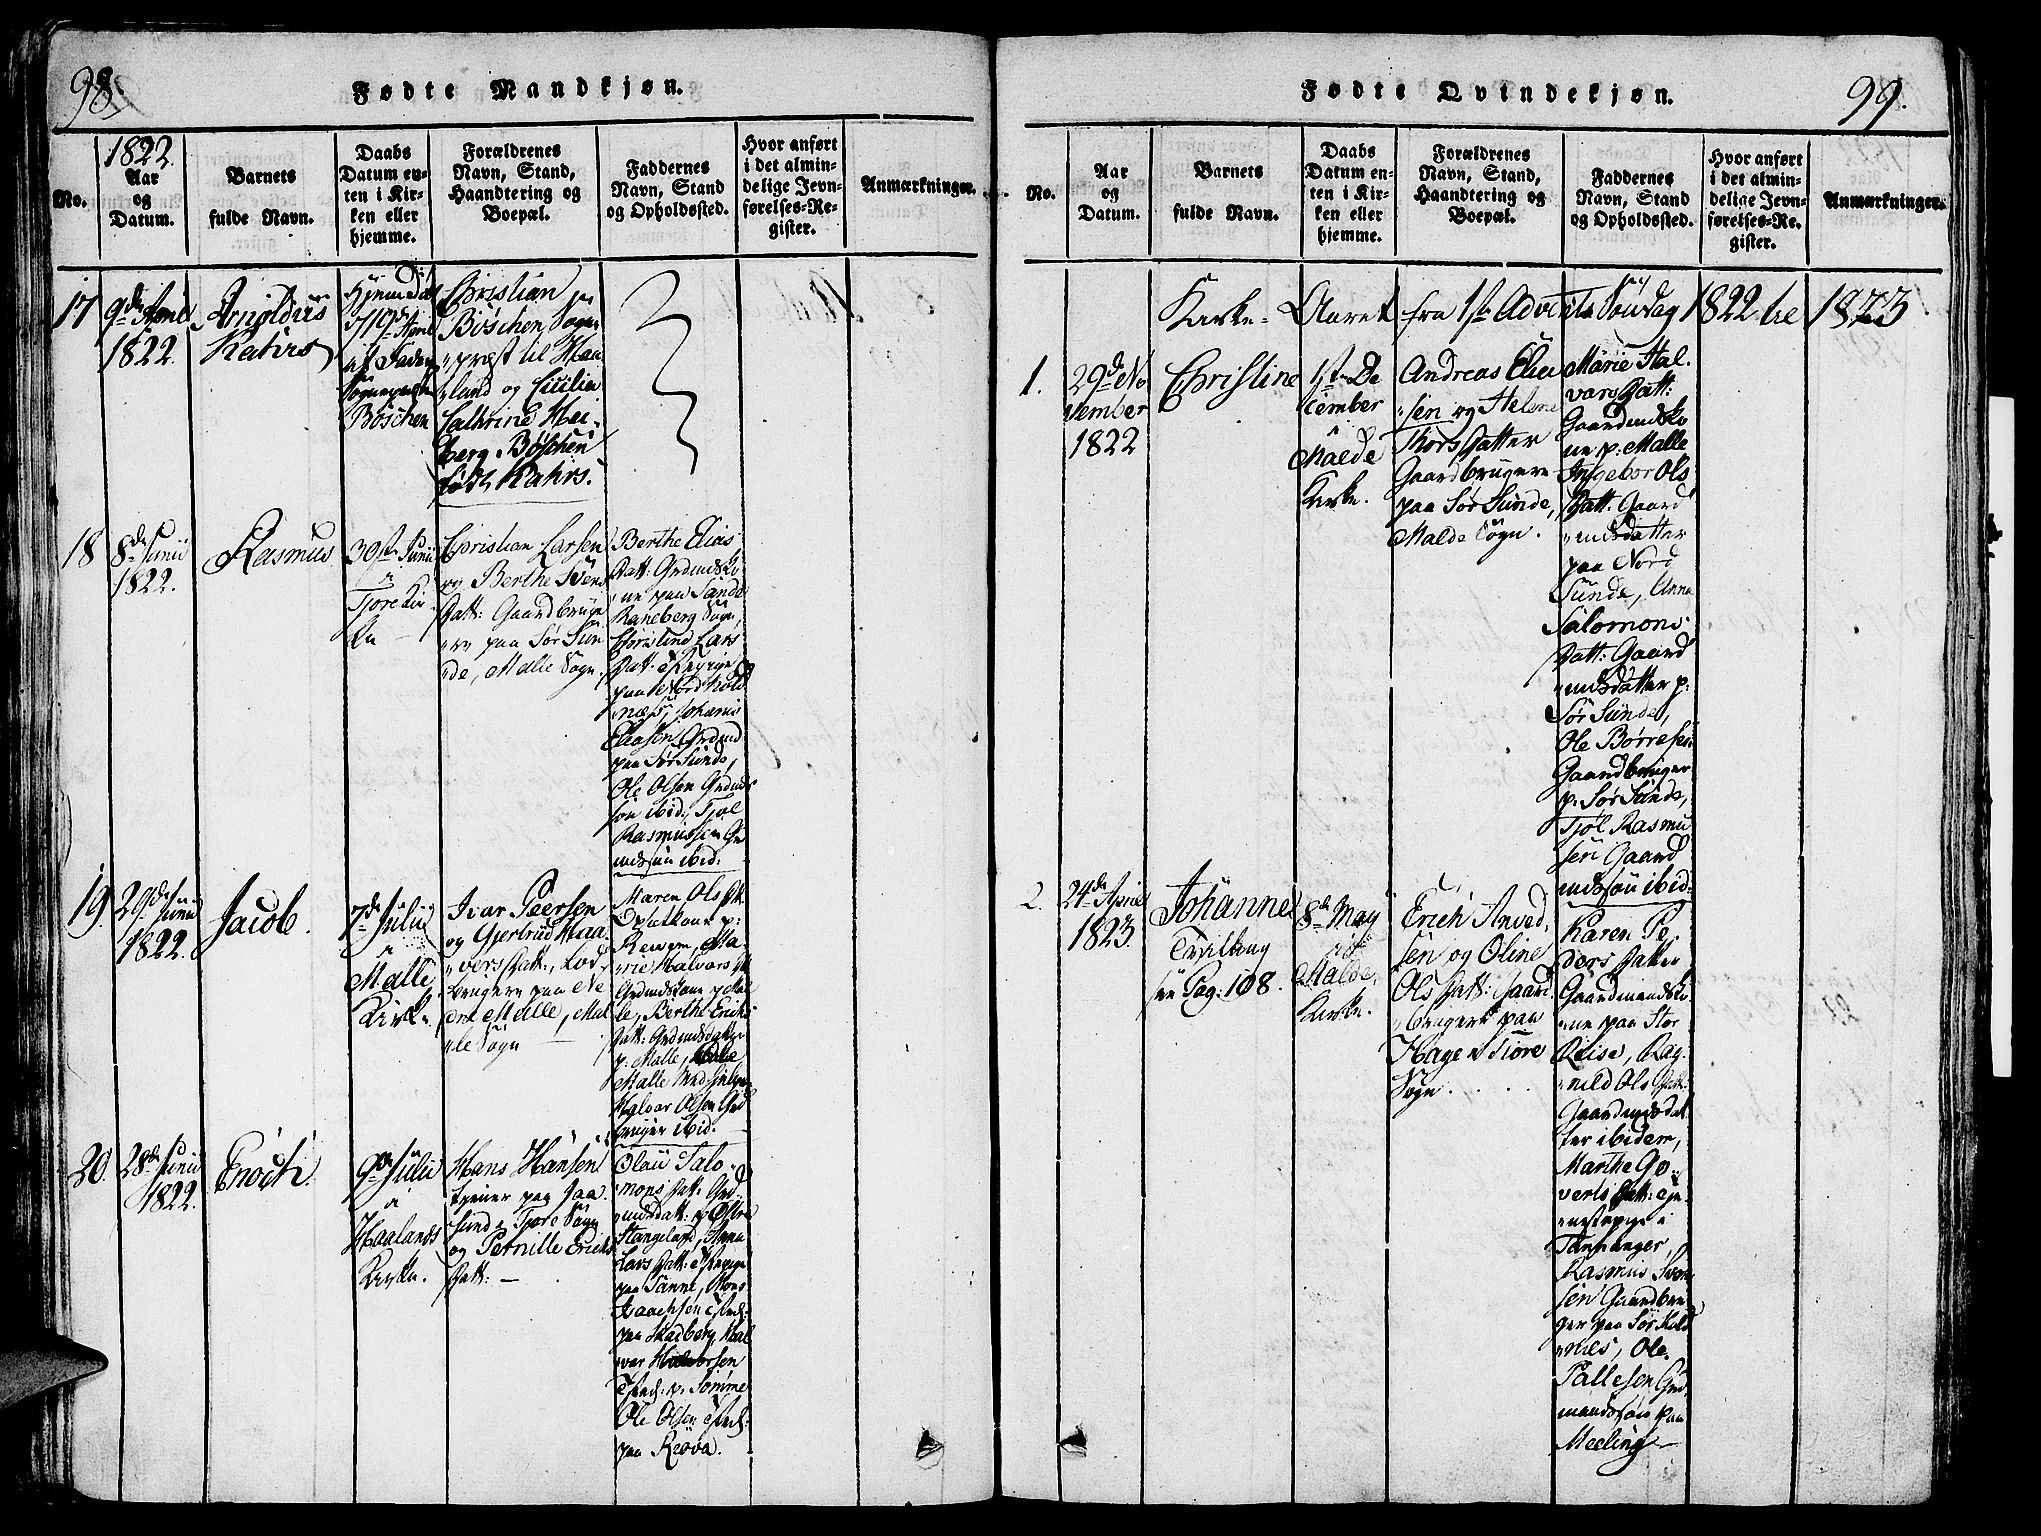 98.
Fødte Mandkjøn.
1822.
No.
Aar
og
Datum.
Barnets
fulde Navn.
Daabs
Datum en-
ten i Kir-
ken eller
hjemme.
Forældrenes
Navn, Stand,
Haandtering og
Boepæl.
Faddernes
Navn, Stand
og Opholdssted.
Hvor anført
i det almin-
delige Jevn-
førelses-Re-
gister.
Anmærkninger.
17
9de April
1822.
Arnoldus
Kahrs
Hjemmedøbt
Böschen
Christian
Böschen Sogne-
præst til Haa-
land og Cecilia
Cathrine Hei-
berg Böschen
født Kahrs.
18
8de Junii
1822.
Rasmus
30te Junii
i
Tjore Kir-
ke
Christian Larsen
og Berthe Svens
Datt: Gaardbruge-
re paa Sør Sun-
de, Malle Sogn.
Berthe Elias
Datt: Grdmdsko-
ne paa Sande
Raneberg Sogn,
Christine Lars
Datt:
paa Nord Kold-
næs, Johanis
Eliasen Grdmd
paa Sør Sunde,
Ole Olsen Grdmds-
søn ibid:, Tjøl
Rasmussen Gr-
mdssøn ibid:
19.
29de Junii
1822.
Jacob.
7de Julii
i
Malle
Kirke
Ivar Peersen
og Gjertrud Haa-
vers Datt:, Lod-
brugere paa Ne-
dre Malle, Mal-
le Sogn
Maren Ols Dtt:
p:
Reigen, Ma-
rie Halvors Dtt
Grdmdskone p: Mal-
le, Berthe Erichs
Datt: Grdmdsdatter
p: Malle,
Malle
Halvor Olsen Grd
bruger ibid.
20.
28de Junii
1822.
Enoch.
9de Julii
i
Haalands
Kirke.
Hans Hansen
tjener paa Jaa-
sund i Tjore Sogn
og Petnille Erichs
Datt: —
Olau Salo-
mons Datt: Grd-
mdsdatt: p: Østre
Stangeland, Anna
Lars Datt:
paa Tanne, Mons
Isaachsen
paa Skadberg, Hal-
var Halvorsen
p: Sømme
Ole Olsen
paa Røva.
Fødte Qvindekjøn.
99.
No.
Aar
og
Datum.
Barnets
fulde Navn.
Daabs
Datum en-
ten i Kir-
ken eller
hjemme.
Forældrenes
Navn, Stand,
Haandtering og
Boepæl.
Faddernes
Navn, Stand
og Opholdssted.
Hvor anført
i det almin-
delige Jevn-
førelses-Re-
gister.
Anmærkninger.
Kirke- Aaret fra 1ste Advents Søndag 1822 til 1823
1.
29de No-
vember
1822
Christine
1ste De-
cember
i
Malde
Kirke.
Andreas Elia-
sen og Helene
Thors Datter
Gaardbrugere
paa Sør Sunde,
Malde Sogn.
Marie Hal-
vars Datt:
Gaardmdsko-
ne p: Malle
Ingebor Ols
Datt: Gaard-
mdsdatter
paa Nord
Sunde, Anna
Salomons
Datt: Gaard-
mdsdatter p:
Sør Sunde,
Ole Børresen
Gaardbruger
p: Sør Sunde,
Tjøl Rasmu-
sen Gaard-
mdssøn ibid:
2.
24de April
1823.
Johanne
Tvilling
see Pag: 108.
8de May
i
Malde
Kirke.
Erich Anved-
sen og Oline
Ols Datt: Gaard-
brugere paa
Hage i Tiore
Sogn.
Karen Pe-
ders Datter
Gaardmandsko-
ne paa Stor
Reise, Rag-
nild Ols Datt:
Gaardmdsdat-
ter ibidem,
Marthe Go-
verts Datt: tje-
nestepige i
Tannanger,
Rasmus Sven-
sen Gaardbru-
ger paa Sør Kold-
næs, Ole
Pallesen Grd-
mandssøn paa
Meeling —